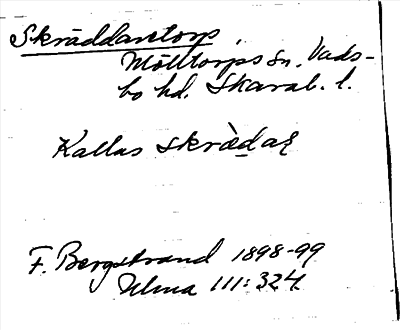 Skräddaretorp,
Mölltorps sn. Vads-
bo hd. Skarab. l.
Kallas skrädar
F. Bergstrand 1898-99
Ulma 111:324